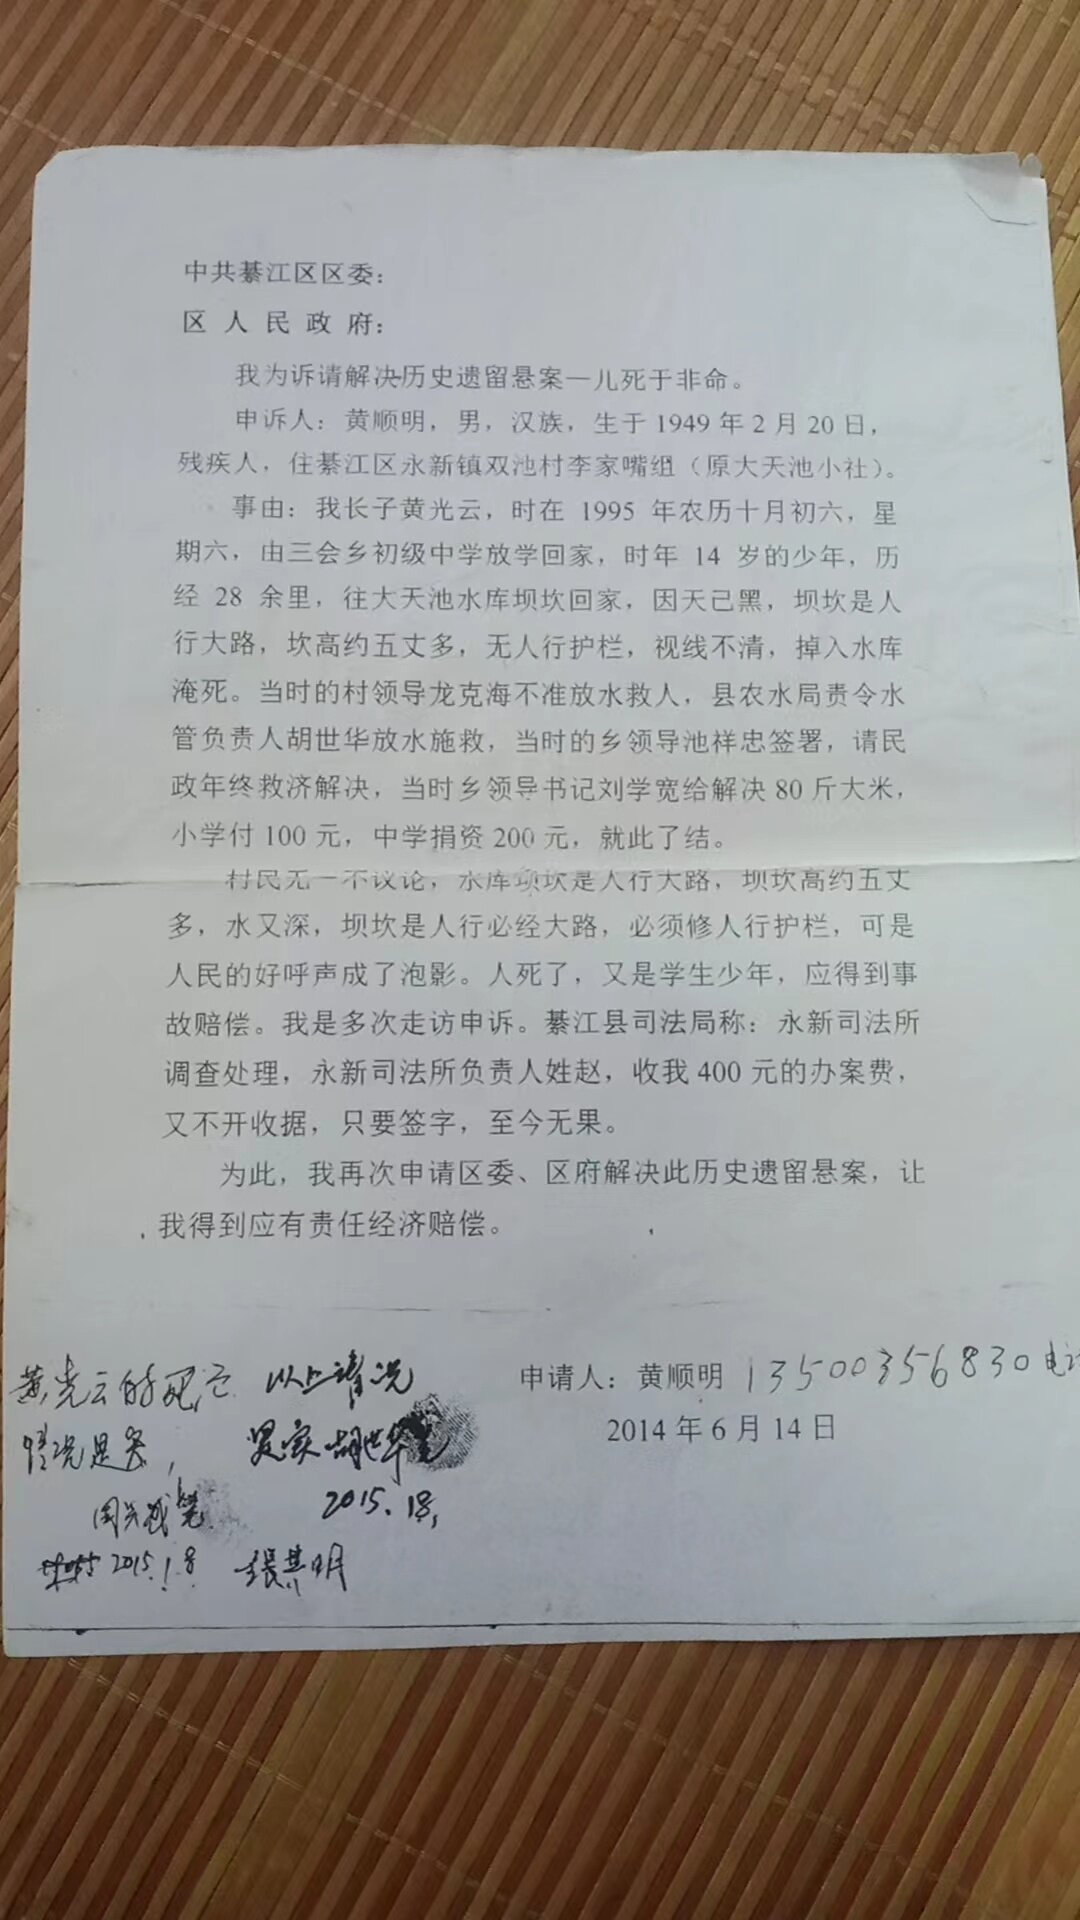 中共綦江区区委：
区人民政府：
我为诉请解决历史遗留悬案—儿死于非命。
申诉人：黄顺明，男，汉族，生于1949年2月20日，
残疾人，住綦江区永新镇双池村李家嘴组（原大天池小社）。
事由：我长子黄光云，时在 1995 年农历十月初六，星
期六，由三会乡初级中学放学回家，时年 14 岁的少年，历
经 28 余里，往大天池水库坝坎回家，因天己黑，坝坎是人
行大路，坎高约五丈多，无人行护栏，视线不清，掉入水库
淹死。当时的村领导龙克海不准放水救人，县农水局责令水
管负责人胡世华放水施救，当时的乡领导池祥忠签署，请民
政年终救济解决，当时乡领导书记刘学宽给解决80斤大米，
小学付100元，中学捐资200元，就此了结。
村民无一不议论，水库坝坎是人行大路，坝坎高约五丈
多，水又深，坝坎是人行必经大路，必须修人行护栏，可是
人民的好呼声成了泡影。人死了，又是学生少年，应得到事
故赔偿。我是多次走访申诉。綦江县司法局称：永新司法所
调查处理，永新司法所负责人姓赵，收我400元的办案费，
又不开收据，只要签字，至今无果。
为此，我再次申请区委、区府解决此历史遗留悬案，让
我得到应有责任经济赔偿。
申请人：黄顺明 13500356830
2014年6月14日
黄光云的死亡 以上情况
情况是实， 是实 胡世华
2015.18,
2015.1.8 张其明